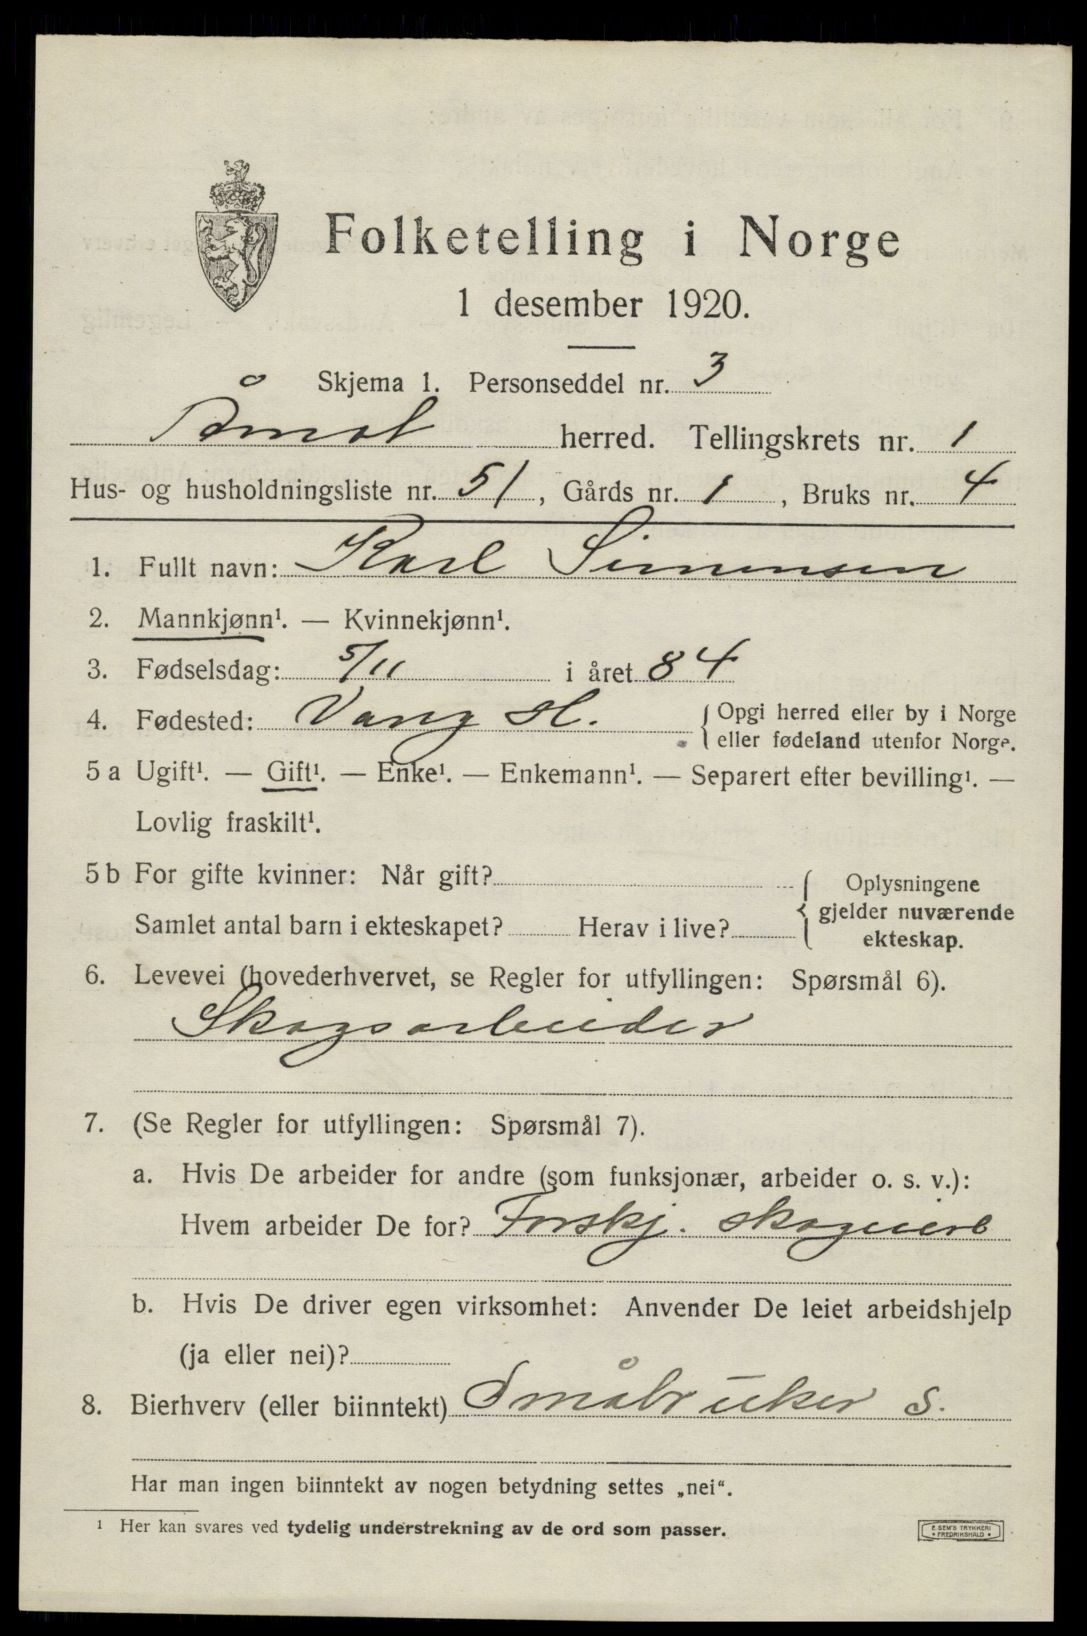 Folketelling i Norge
1 desember 1920.
Skjema 1. Personseddel nr. 3
Åmot herred. Tellingskrets nr. 1
Hus- og husholdningsliste nr. 51, Gårds nr. 1, Bruks nr. 4
1. Fullt navn: Karl Simensen
2. Mannkjønn¹. — Kvinnekjønn¹.
3. Fødselsdag: 5/11 i året 84
4. Fødested: Vang H. { Opgi herred eller by i Norge
eller fødeland utenfor Norge.
5 a Ugift¹. — Gift¹. — Enke¹. — Enkemann¹. — Separert efter bevilling¹. —
Lovlig fraskilt¹.
5 b For gifte kvinner: Når gift? { Oplysningene
Samlet antal barn i ekteskapet? Herav i live? gjelder nuværende
ekteskap.
6. Levevei (hovederhvervet, se Regler for utfyllingen: Spørsmål 6).
Skogsarbeider
7. (Se Regler for utfyllingen: Spørsmål 7).
a. Hvis De arbeider for andre (som funksjonær, arbeider o. s. v.):
Hvem arbeider De for? Forskj. skogeiere
b. Hvis De driver egen virksomhet: Anvender De leiet arbeidshjelp
(ja eller nei)?
8. Bierhverv (eller biinntekt) Småbruker S.
Har man ingen biinntekt av nogen betydning settes „nei“.
¹ Her kan svares ved tydelig understrekning av de ord som passer.
E. SEM'S TRYKKERI
FREDRIKSHALD